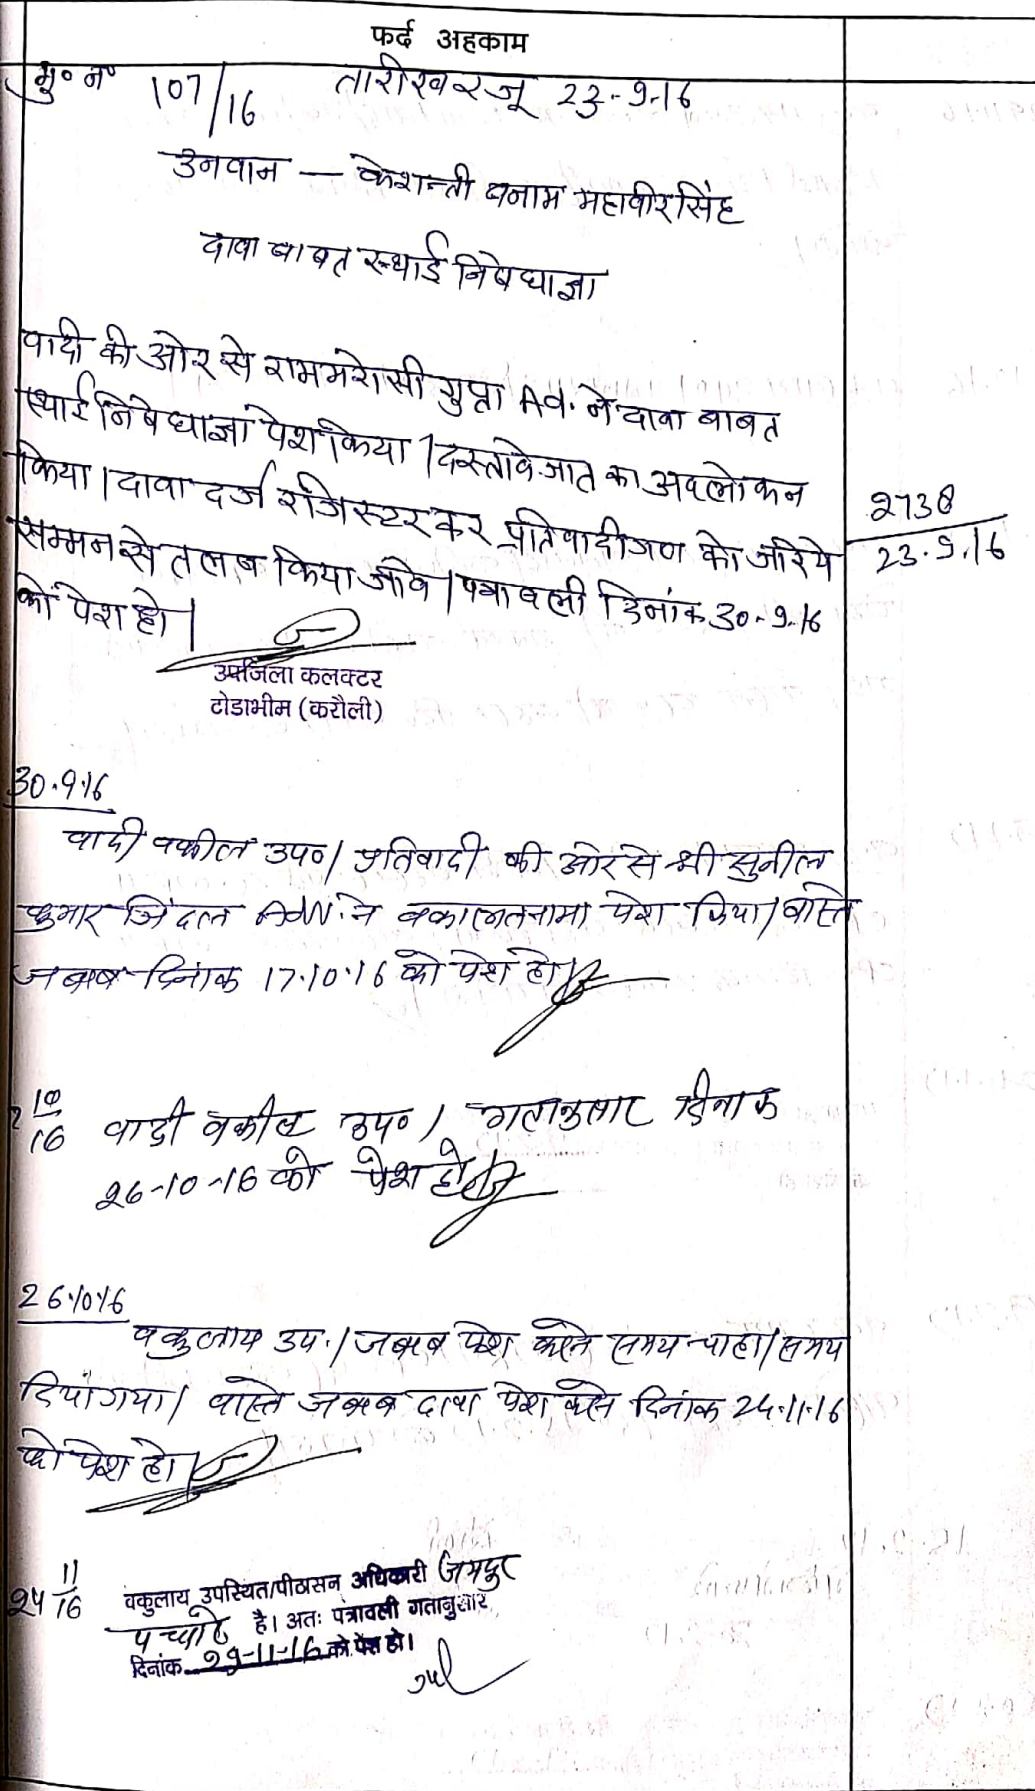 फर्द अहकाम
मु० न० 107/16 तारीख रजू 23-9-16
उनवान — केशन्ती बनाम महावीरसिंह
दावा बाबत स्थाई निषेधाज्ञा
वादी की ओर से गुप्ता Ad. ने दावा बाबत
स्थाई निषेधाज्ञा पेश किया । दस्तावेजात का अवलोकन
किया । दावा दर्ज रजिस्टर कर प्रतिवादीगण को जरिये
सम्मन से तलब किया जावे । पत्रावली दिनांक 30-9-16
को पेश हो ।
2738
23.9.16
उपजिला कलक्टर
टोडाभीम (करौली)
30.9.16
वादी वकील उप० / प्रतिवादी की ओर से श्री सुनील
कुमार जिंदल Adv. ने वकालतनामा पेश किया / वास्ते
जबाब दिनांक 17.10.16 को पेश हो
10/16 वादी वकील उप० / गतानुसार दिनांक
26-10-16 को पेश हो
26.10.16
वकुलाय उप. / जबाब पेश करने समय चाहा / समय
दिया गया / वास्ते जबाब दावा पेश करने दिनांक 24.11.16
को पेश हो
24 11/16 वकुलाय उपस्थित/पीठासन अधिकारी जयपुर
है। अतः पत्रावली गतानुसार
दिनांक 29-11-16 को पेश हो।